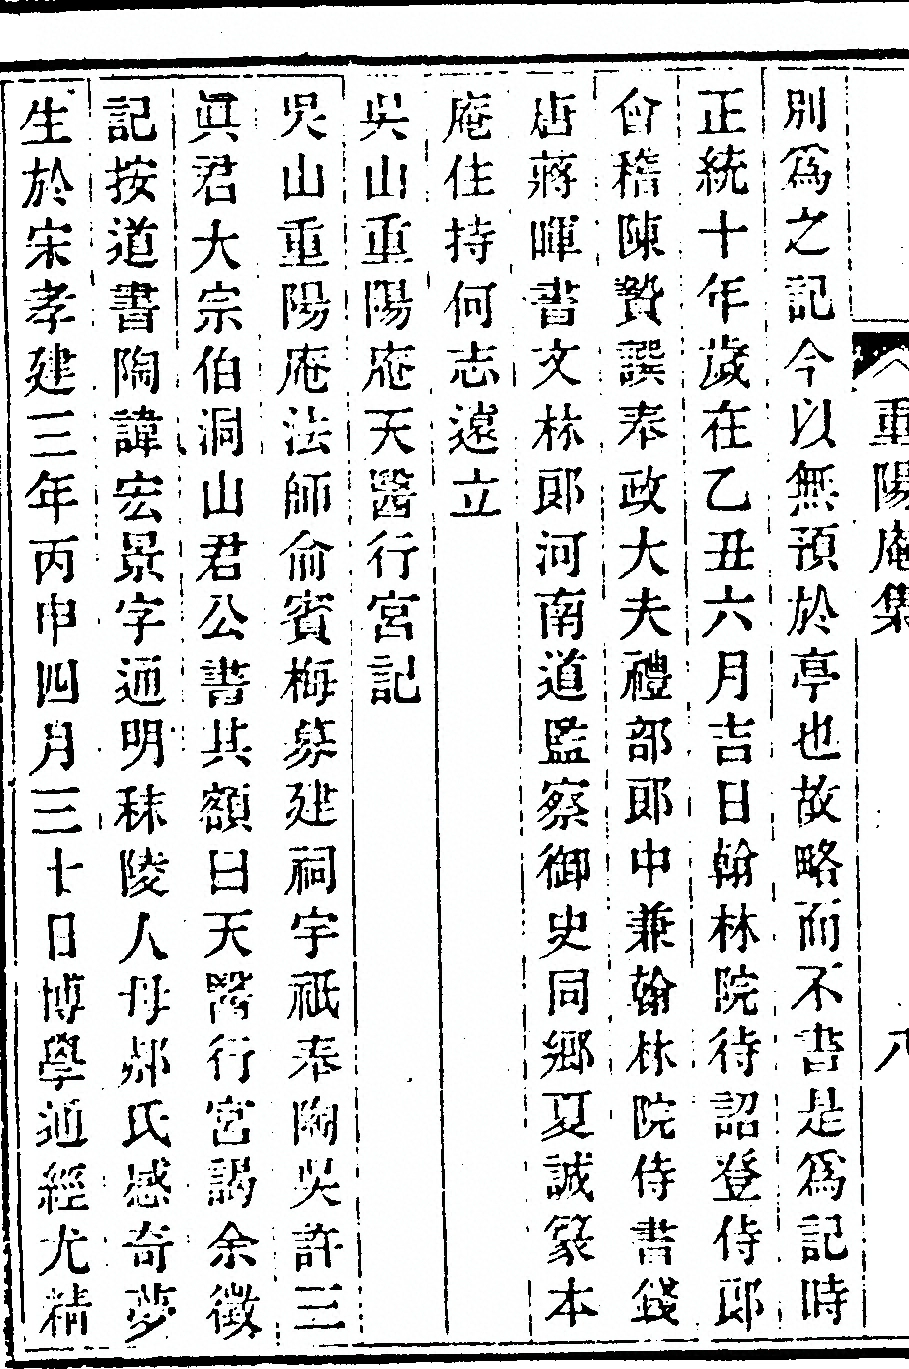 重陽庵集
八
別爲之記今以無預於亭也故略而不書是爲記時
正統十年歲在乙丑六月吉日翰林院待詔登侍郎
會稽陳贄譔奉政大夫禮部郎中兼翰林院侍書錢
唐蔣暉書文林郎河南道監察御史同鄉夏誠篆本
庵住持何志遠立
吳山重陽庵天醫行宮記
吳山重陽庵法師俞賓梅募建祠宇祇奉陶吳許三
眞君大宗伯洞山君公書其額曰天醫行宮謁余徵
記按道書陶諱宏景字通明秣陵人母郝氏感奇夢
生於宋孝建三年丙申四月三十日博學通經尤精